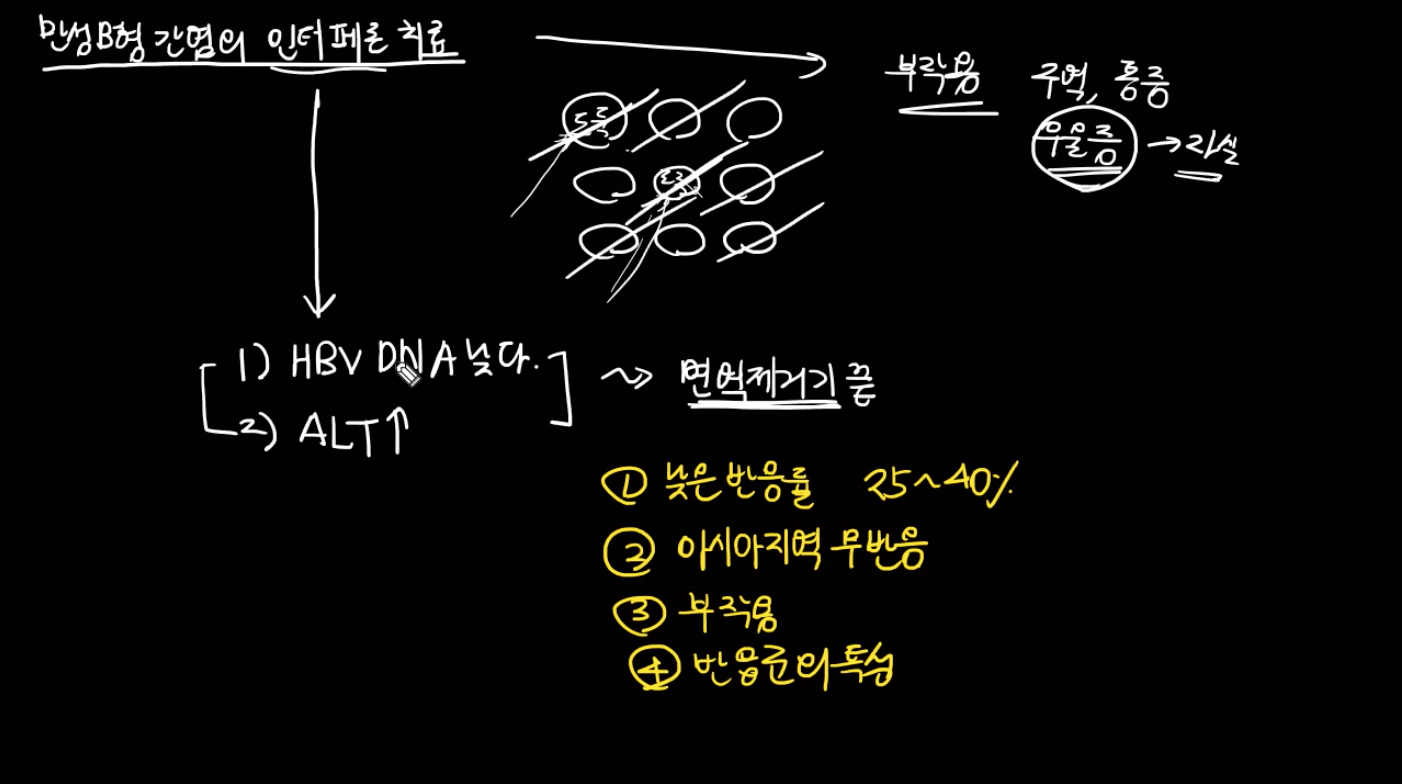 만성B형 간염의 인터페론 치료
부작용 구역, 통증
우울증 → 자살
도둑
도둑
1) HBV DNA 낮다.
2) ALT↑
면역제거기 끝
① 낮은 반응률 25~40%
② 아시아지역 무반응
③ 부작용
④ 반응군의 특성